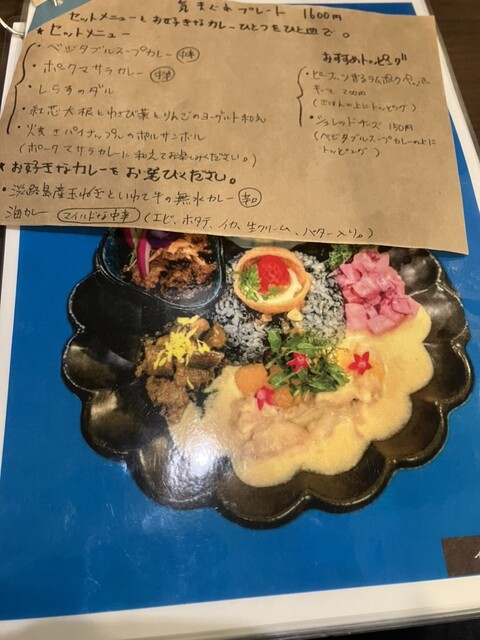 気まぐれプレート 1600円
セットメニューとお好きなカレーひとつをひと皿で。
★セットメニュー
・ベジタブルスープカレー 中辛
・ポークマサラカレー 中辛
・しらすのダル
・紅芯大根とわさび菜とりんごのヨーグルト和え
・焼きパイナップルのポルサンボル
(ポークマサラカレーに和えてお楽しみください。)
おすすめトッピング
200円
(ごはんの上にトッピング)
・シュレッドチーズ 150円
(ベジタブルスープカレーの上に
トッピング)
★お好きなカレーをお選びください。
・淡路島産玉ねぎといわて牛の無水カレー 辛口
海カレー マイルドな中辛 (エビ、ホタテ、イカ、生クリーム、バター入り。)